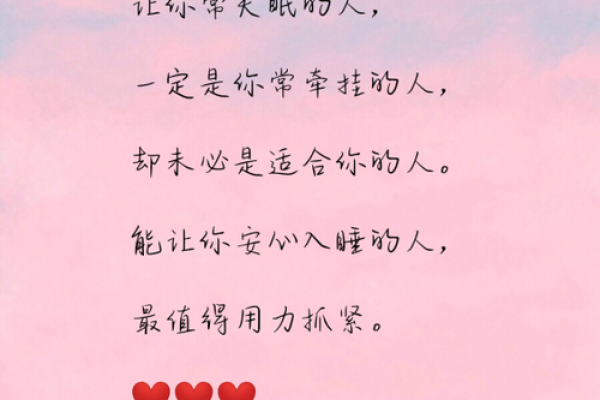 让你常失眠的人，
一定是你常牵挂的人，
却未必是适合你的人。
能让你安心入睡的人，
最值得用力抓紧。